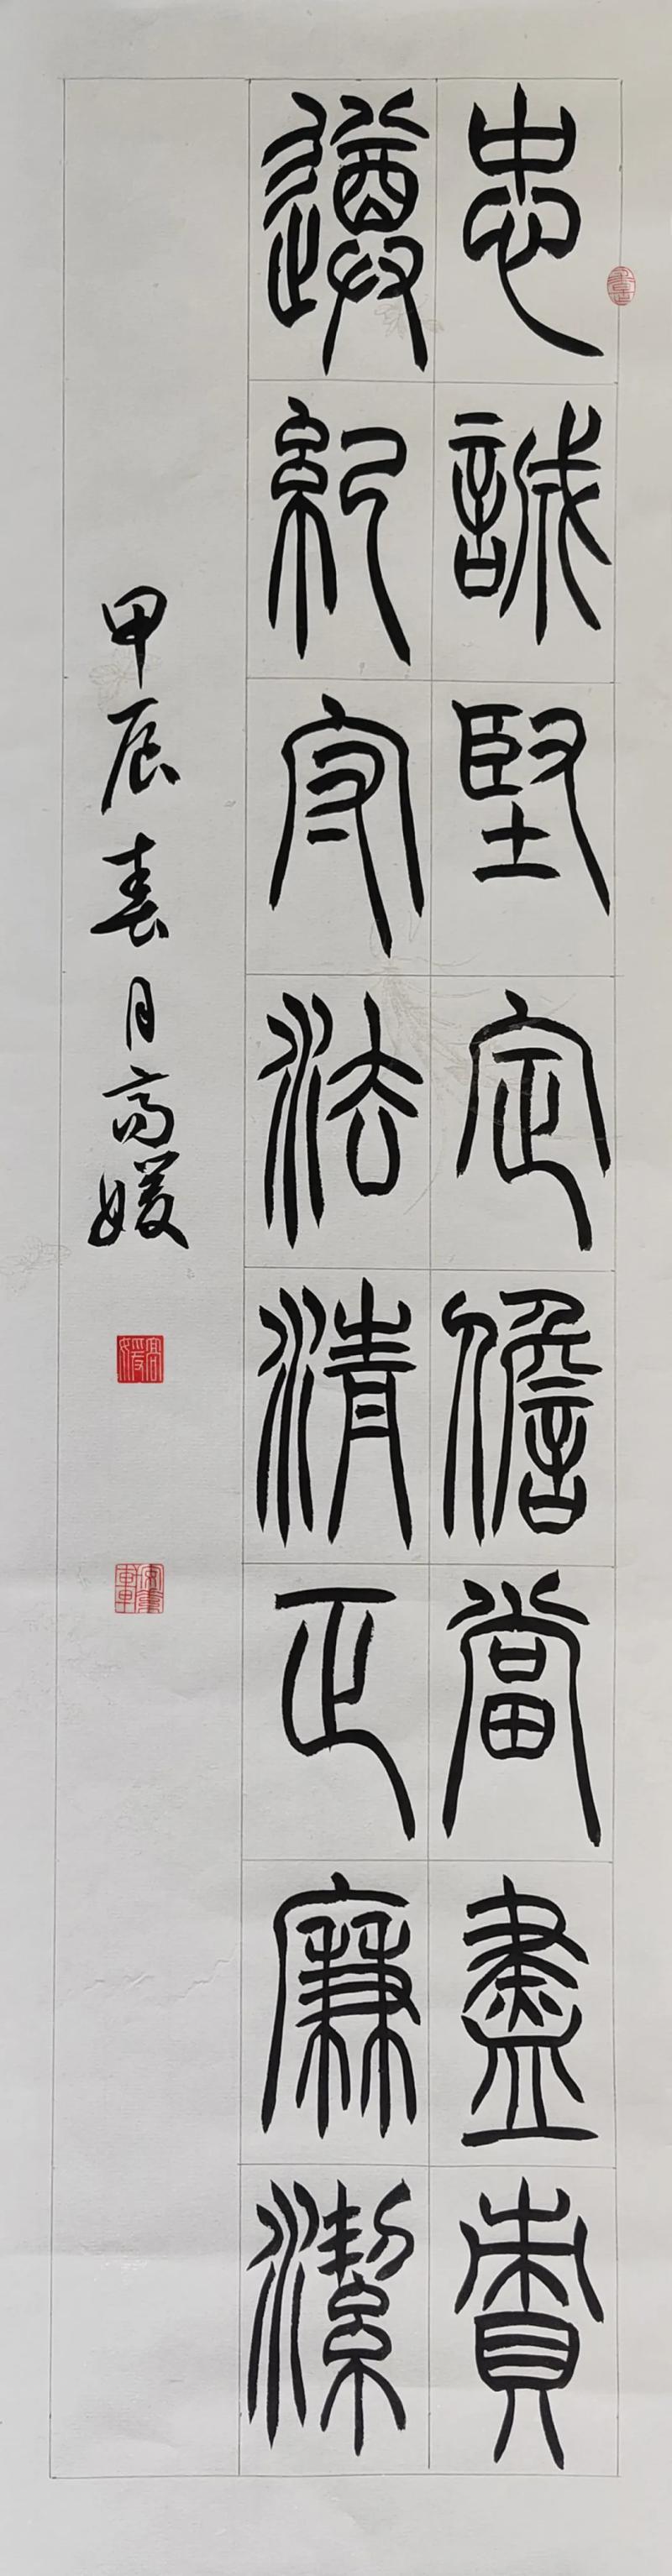 忠誠堅定擔當盡責
遵紀守法清正廉潔
甲辰春月高媛
高媛